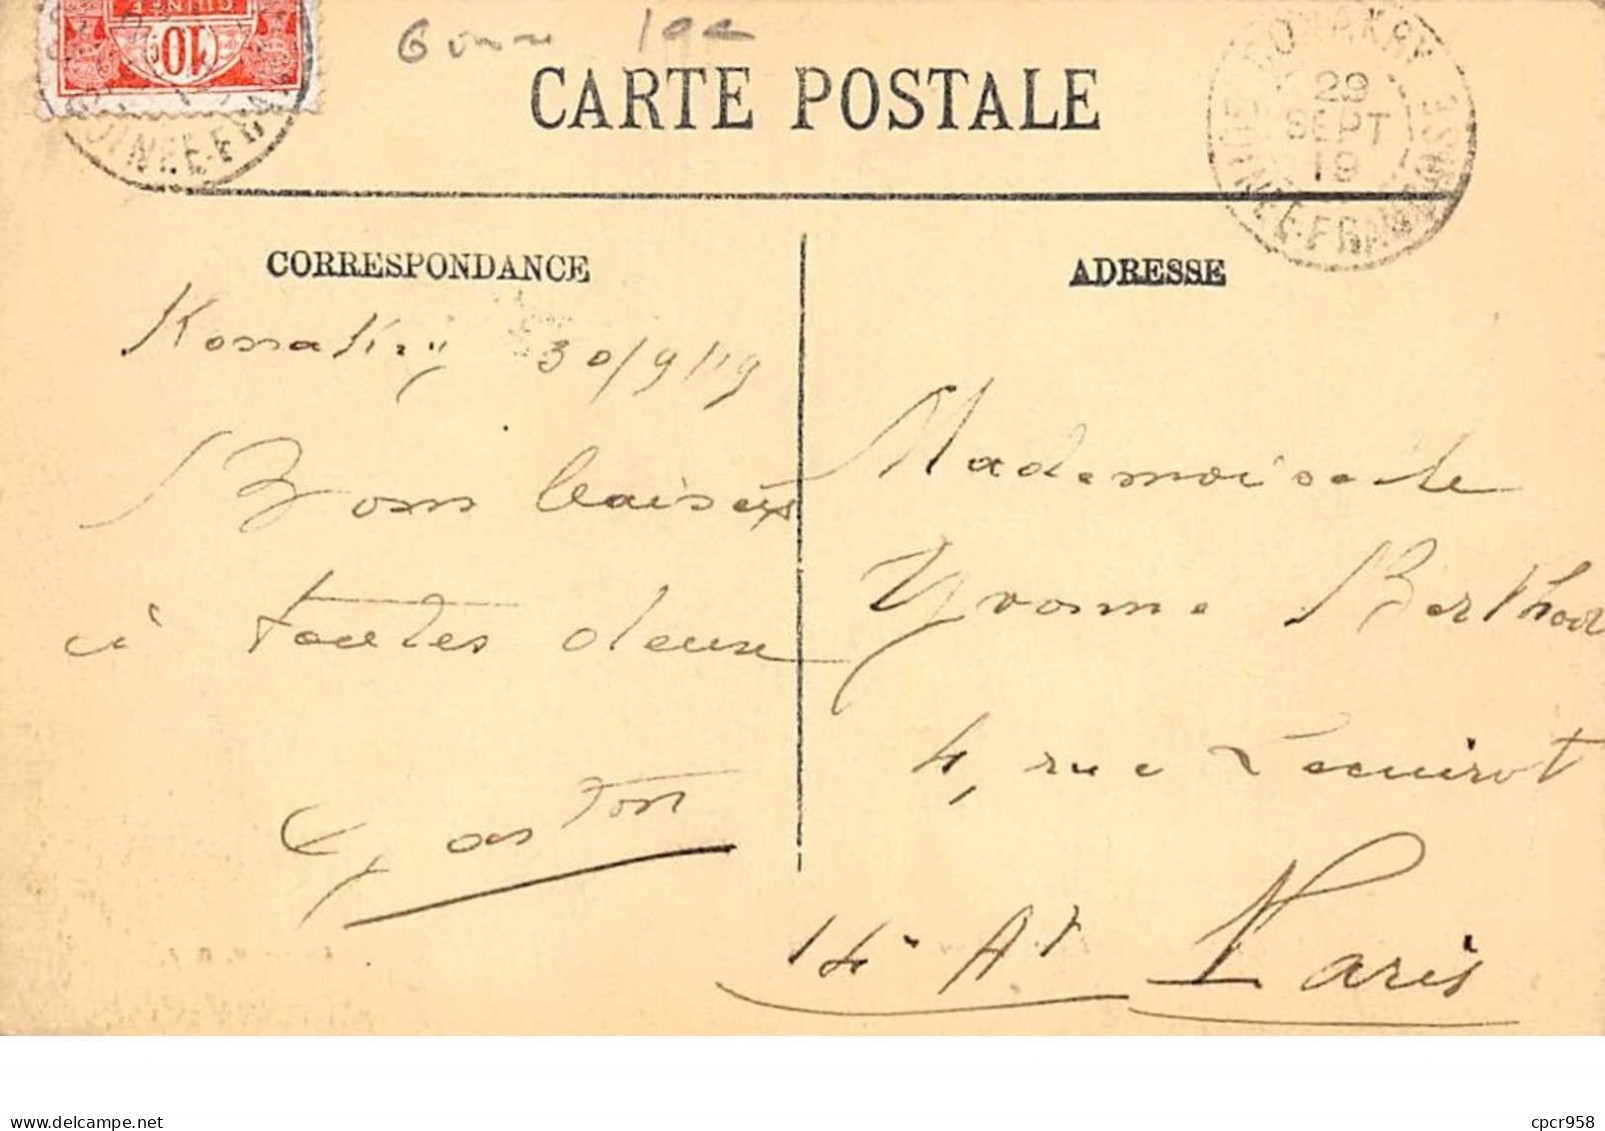 GUINÉE
10c
CARTE POSTALE
CONAKRY
29
SEPT
19
GUINEE-FRANÇAISE
CORRESPONDANCE
Konakry 30/9/19
Bons baisers
à toutes deux
Gaston
ADRESSE
Mademoiselle
Yvonne
4, rue Lecuirot
14e Art Paris
delcampe.net
cpcr958